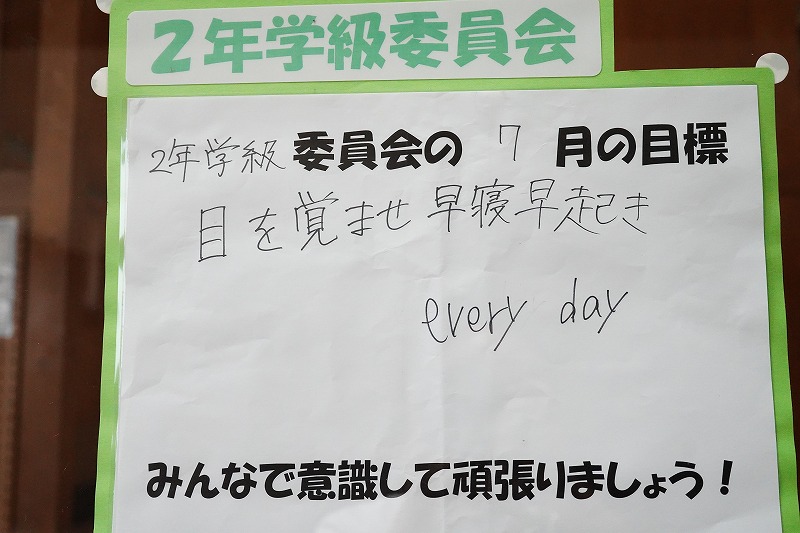 ２年学級委員会
2年学級 委員会の 7 月の目標
目を覚ませ 早寝早起き
every day
みんなで意識して頑張りましょう！